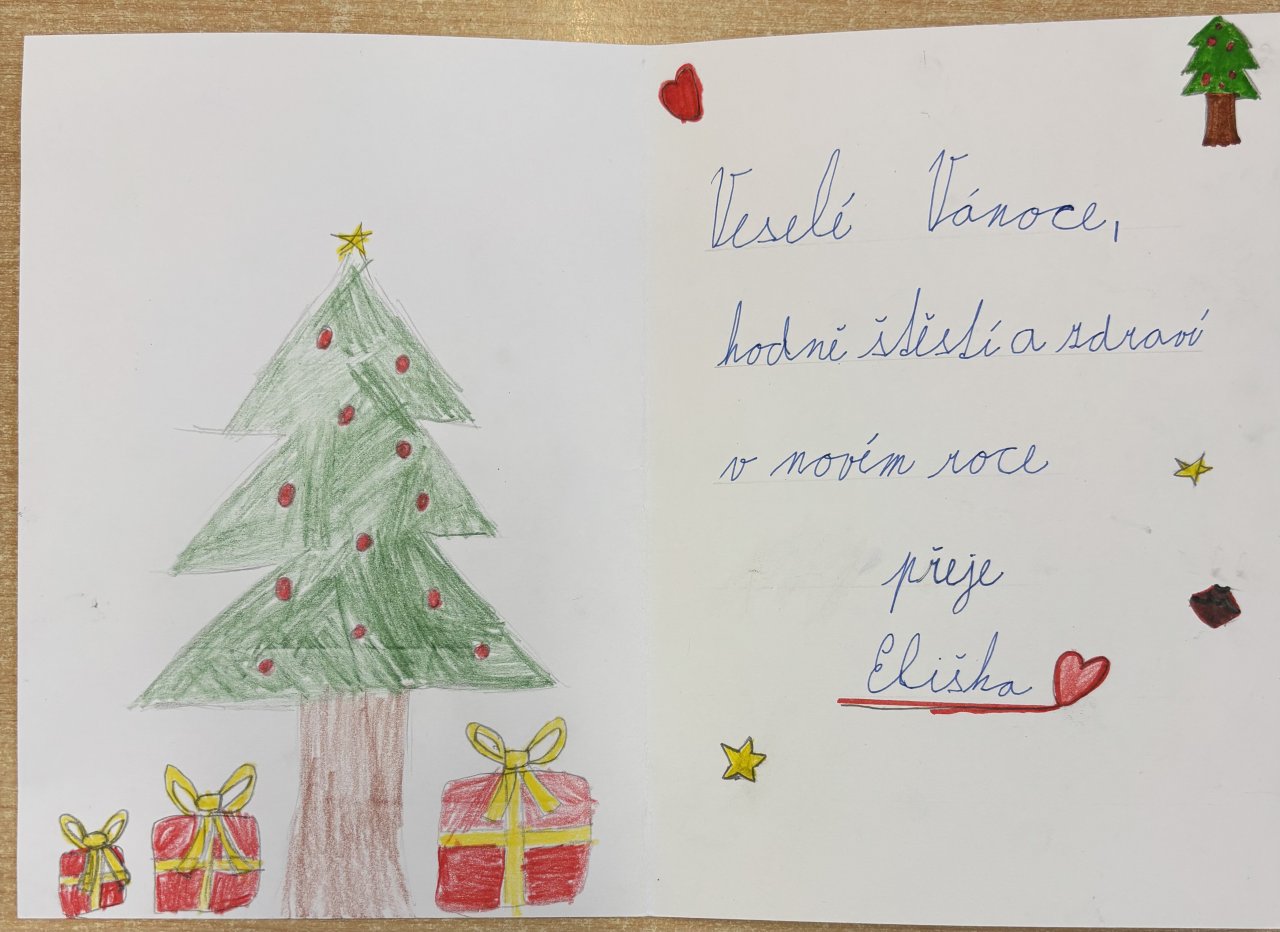 Veselé Vánoce,
hodně štěstí a zdraví
v novém roce
přeje
Eliška